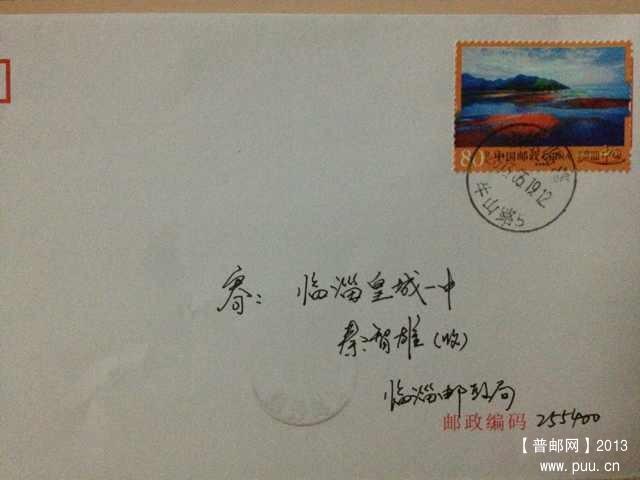 80分 中国邮政
2013.05.19.12
寄: 临淄皇城一中
秦智雄(收)
临淄邮政局
邮政编码 255400
【普邮网】2013
www.puu.cn